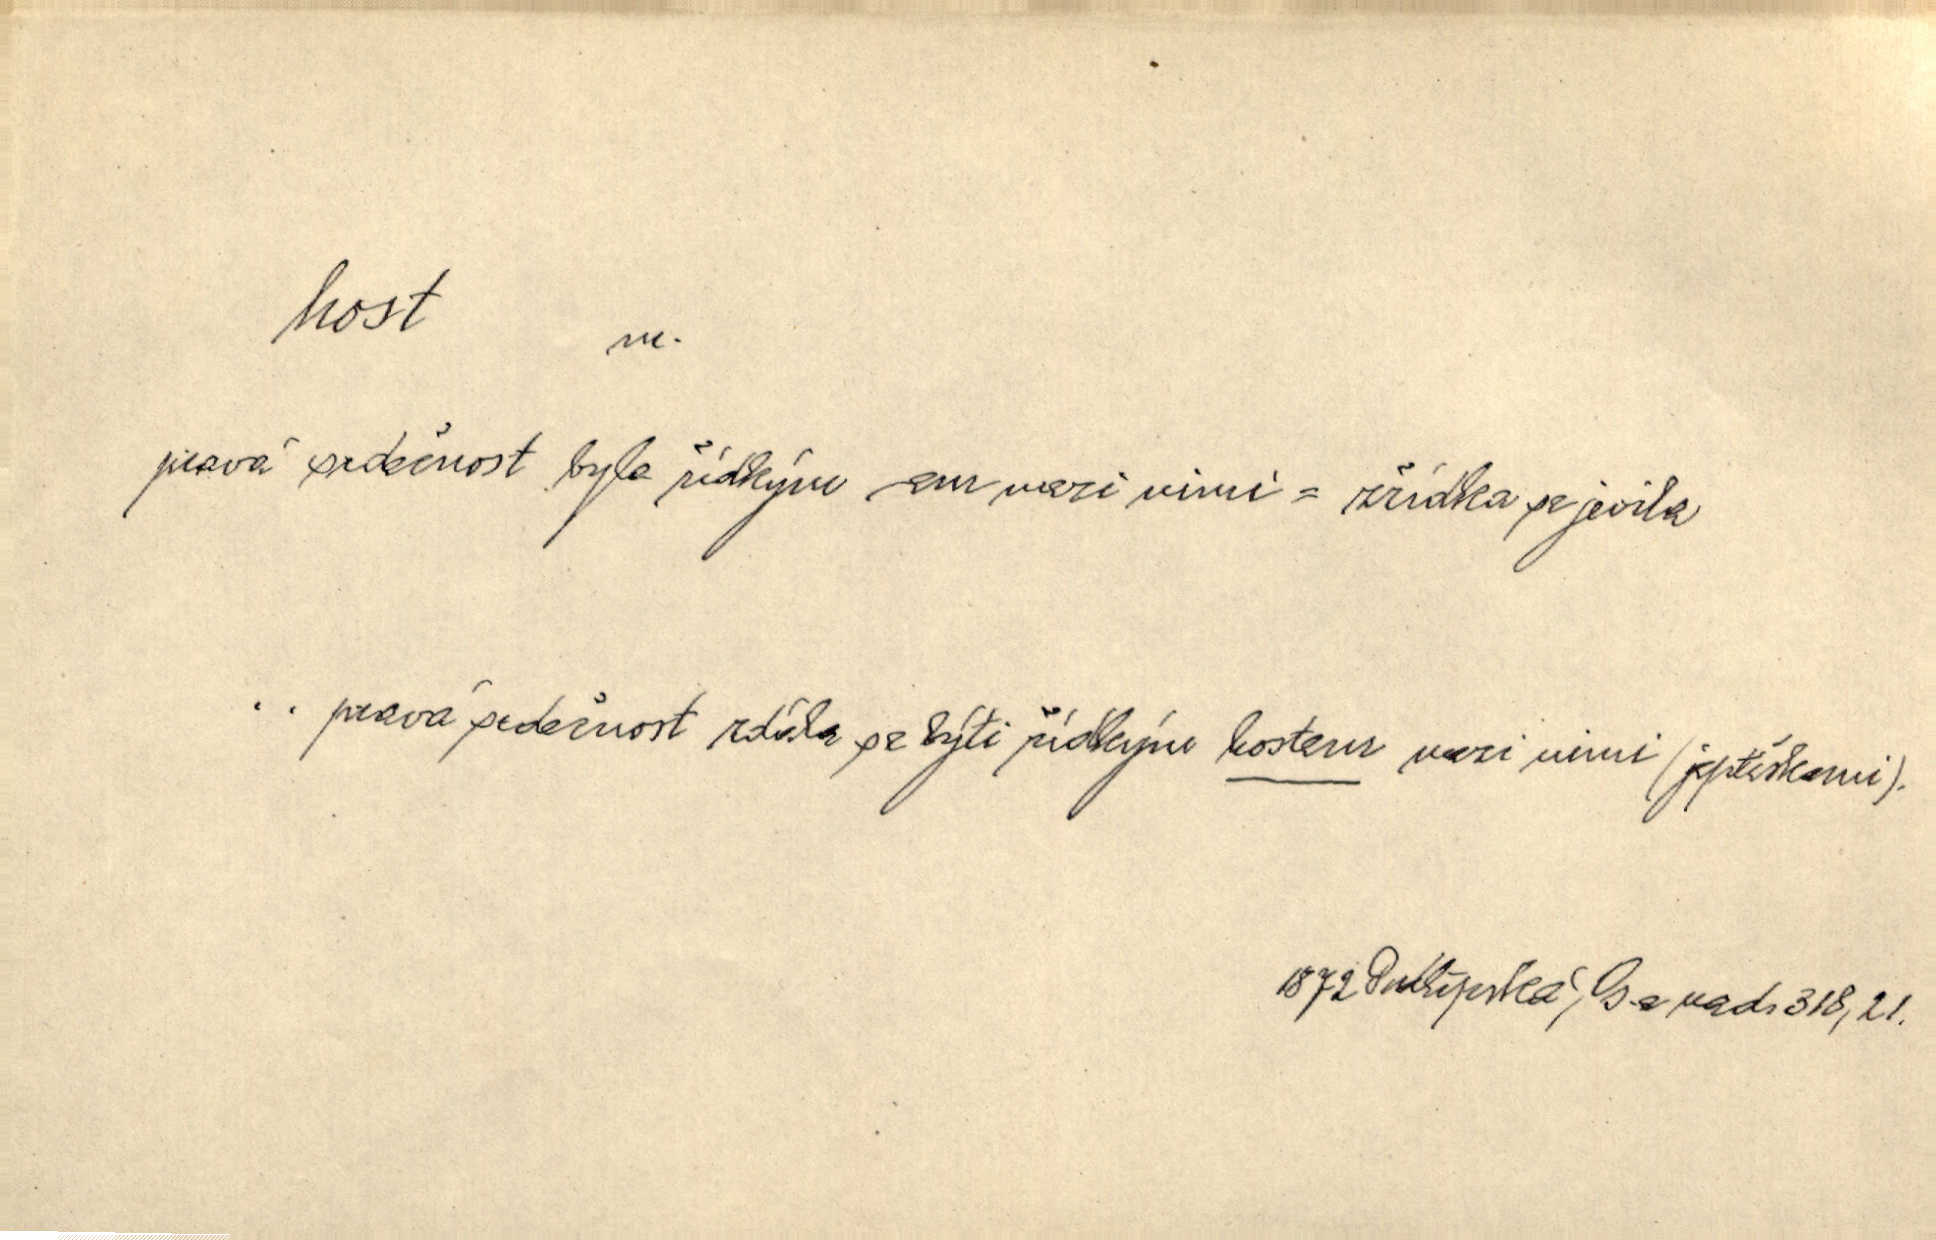 host m.
pravá srdečnost byla řídkým -em mezi nimi = zřídka se jevila
. . pravá srdečnost zdála se býti řídkým hostem mezi nimi (jeptiškami).
1872 Podlipská, Os. a nad. 318, 21.